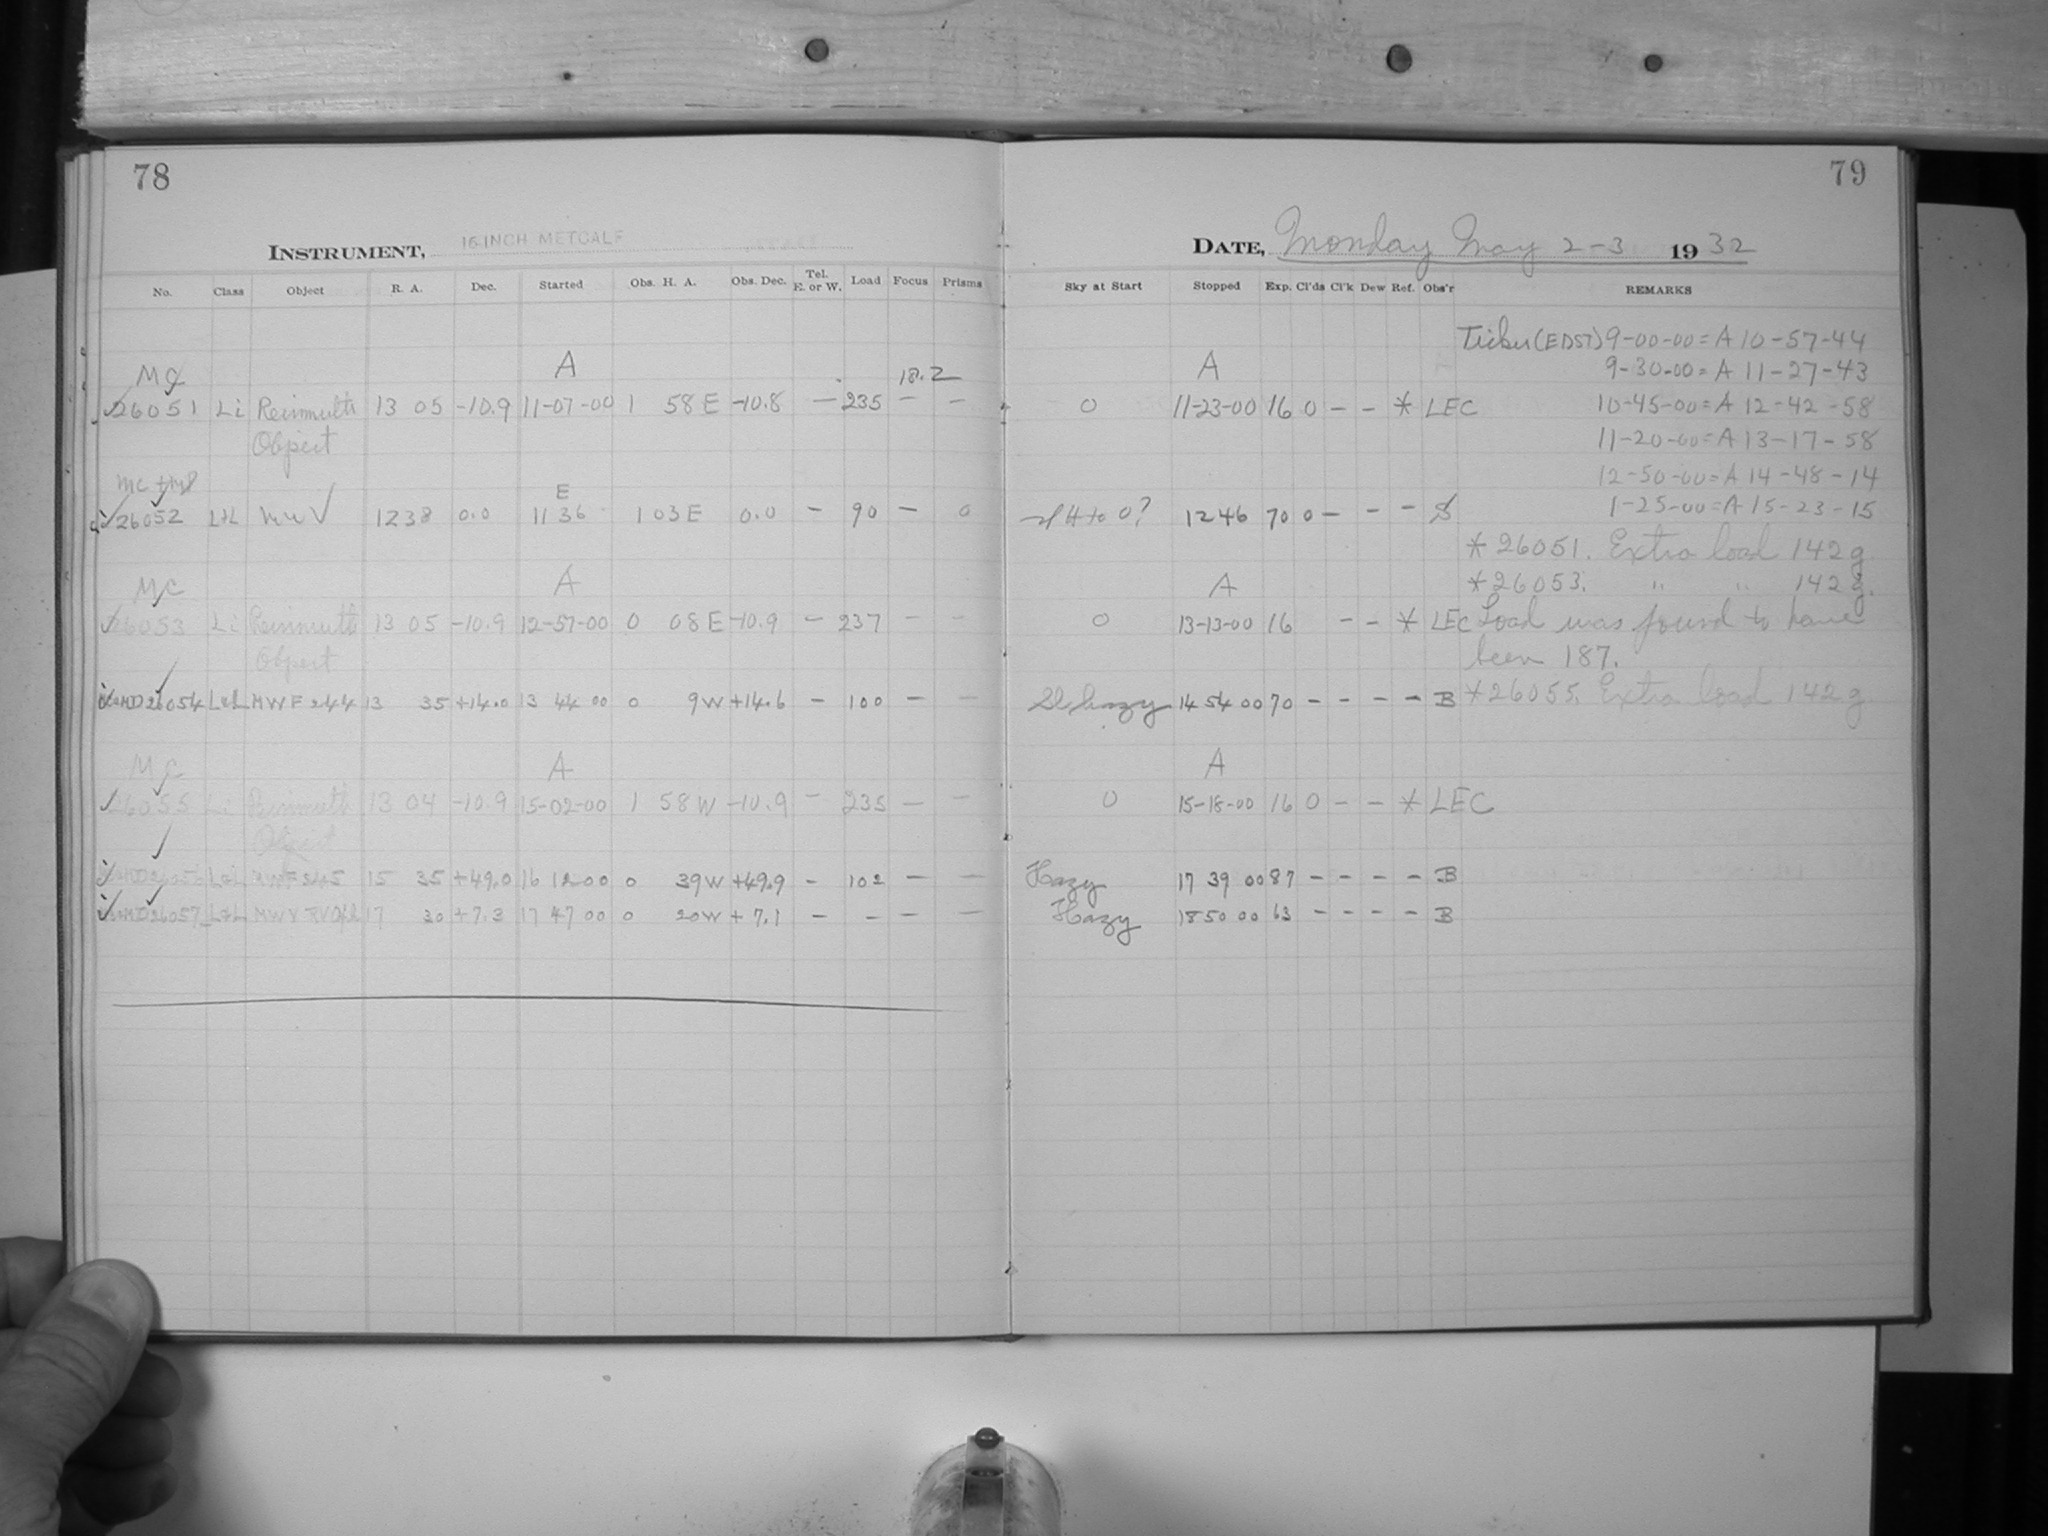 78
INSTRUMENT, 16-INCH METCALF
No. Class Object R. A. Dec. Started Obs. H. A. Obs. Dec. Tel. E. or W. Load Focus Prisms
A
MC 18.2
26051 Li Reinmuth 13 05 -10.9 11-07-00 1 58 E -10.8 — 235 — —
Object
MC
E
26052 L+L MWV 12 38 0.0 11 36 1 03 E 0.0 — 90 — 0
MC A
26053 Li Reinmuth 13 05 -10.9 12-57-00 0 08 E -10.9 — 237 — —
Object
26054 L+L MWF 244 13 35 +14.0 13 44 00 0 9 W +14.6 — 100 — —
MC A
26055 Li Reinmuth 13 04 -10.9 15-02-00 1 58 W -10.9 — 235 — —
Object
26056 L+L MWF 245 15 35 +49.0 16 12 00 0 39 W +49.9 — 102 — —
26057 L+L MWV 17 30 +7.3 17 47 00 0 20 W +7.1 — — — —
79
DATE, Monday May 2-3 1932
Sky at Start Stopped Exp. Cl'ds Cl'k Dew Ref. Obs'r REMARKS
Ticker (EDST) 9-00-00 = A 10-57-44
A 9-30-00 = A 11-27-43
0 11-23-00 16 0 — — * LEC 10-45-00 = A 12-42-58
11-20-00 = A 13-17-58
12-50-00 = A 14-48-14
to 0? 12 46 70 0 — — — 1-25-00 = A 15-23-15
* 26051. Extra load 142 g
A * 26053. " " 142 g.
0 13-13-00 16 — — * LEC Load was found to have
been 187.
Sl hazy 14 54 00 70 — — — — B * 26055. Extra load 142 g
A
0 15-18-00 16 0 — — * LEC
Hazy 17 39 00 87 — — — — B
Hazy 18 50 00 63 — — — — B